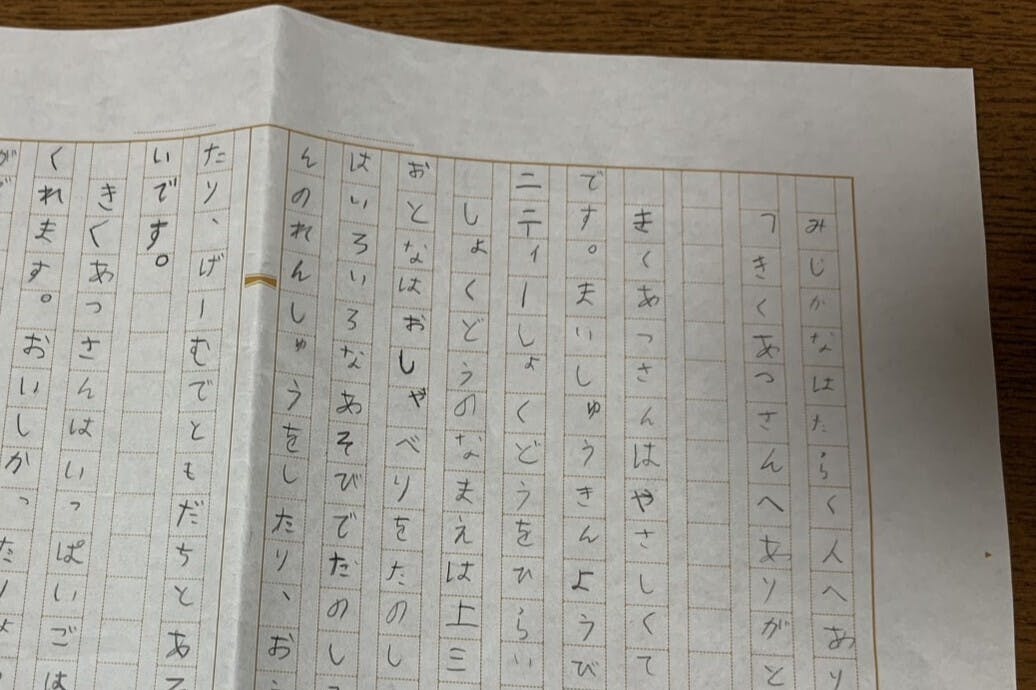 みじかなはたらく人へあり
きくあつさんへありがと
きくあっさんはやさしくて
です。まいしゅうきんようび
ニティーしょくどうをひらい
しょくどうのなまえは上三
おとなはおしゃべりをたのし
はいろいろなあそびでだのし
んのれんしゅうをしたり、お
たり、げーむでともだちとあ
いです。
きくあっさんはいっぱいごは
くれます。おいしかっ